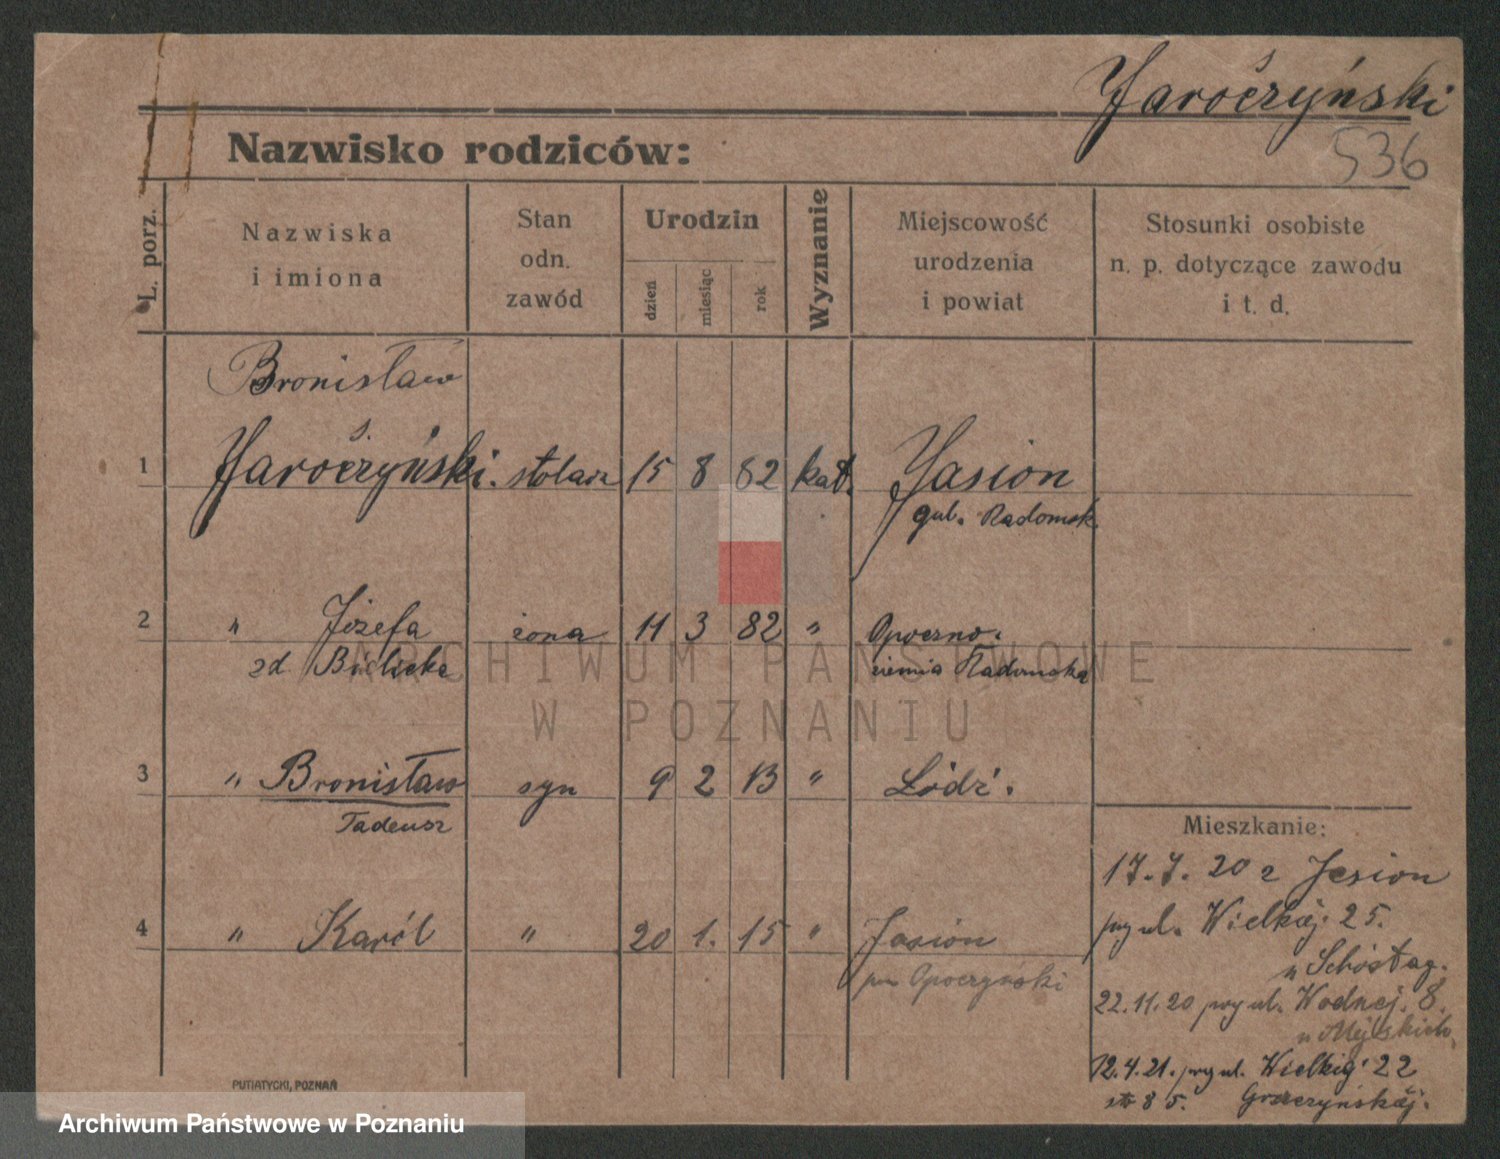 Jaroczyński
536
Nazwisko rodziców:
L. porz.
Nazwiska
i imiona
Stan
odn.
zawód
Urodzin
dzień
miesiąc
rok
Wyznanie
Miejscowość
urodzenia
i powiat
Stosunki osobiste
n. p. dotyczące zawodu
i t. d.
Bronisław
1 Jaroczyński. stolarz 15 8 82 kat. Jasion
gub. Radomsk.
2 " Józefa żona 11 3 82 " Opoczno.
zd Bielicka ziemia Radomska
3 " Bronisław syn 9 2 13 " Łódź.
Tadeusz
4 " Karól " 20 1. 15 " Jasion
pow Opoczyński
Mieszkanie:
17.7.20 z Jesion
przy ul. Wielkiej 25.
u
22.11.20 przy ul. Wodnej. 8.
u
12.4.21. przy ul. Wielkiej 22
85.
PUTIATYCKI, POZNAŃ
ARCHIWUM PAŃSTWOWE
W POZNANIU
Archiwum Państwowe w Poznaniu